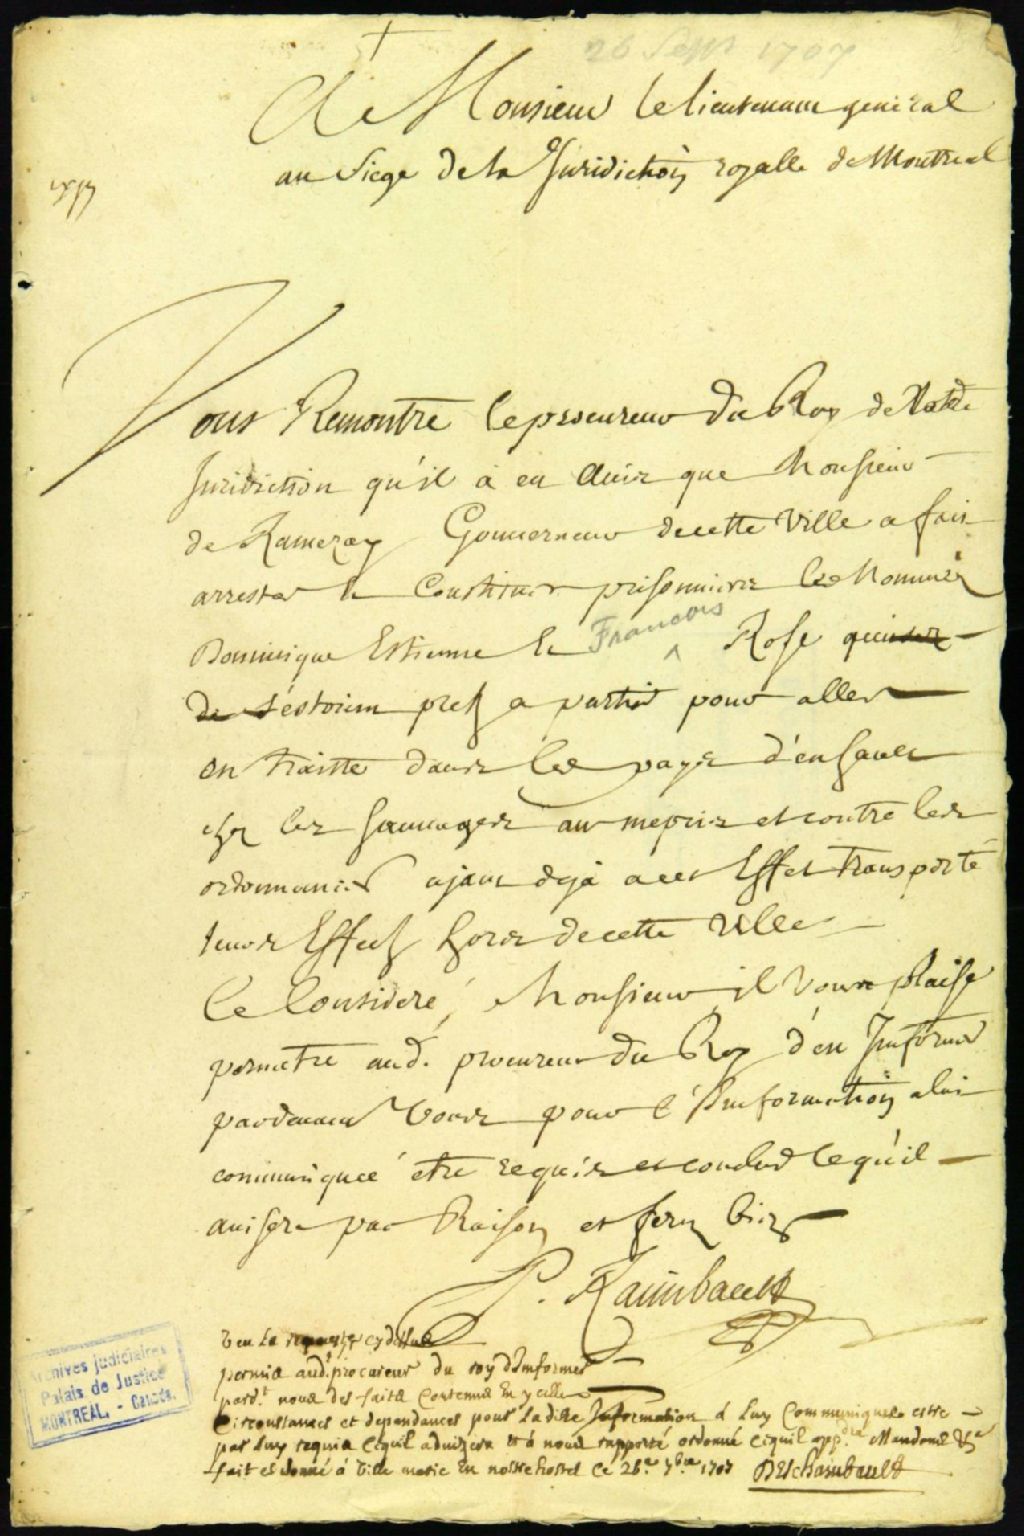 26 Sept 1707
A Monsieur le lieutenant general
au Siege de la Juridiction royalle de Montreal
Vous Remontre le procureur du Roy de
Juridiction qu'il a eu avis que Monsieur
de Ramezay Gouverneur de cette Ville a fait
arrester & Constituer prisonniers les Nommés
Dominique Estienne & François Rose
prest a partir pour aller
en traitte dans les pays d'en hault
chez les sauvages au mepris et contre les
ordonnances ayant deja a cet Effet transporté
leurs Effects hors de cette Ville
Ce Consideré, Monsieur il vous plaise
permetre aud. procureur du Roy d'en Informer
pardevant Vous pour l'Information a lui
communiquée etre requis et conclud ce qu'il
avisera par Raison et ferez bien
P. Raimbault
Veu la requeste cy dessus
permis aud. procureur du roy d'Informer
pard.t nous des faits Contenus En ycelle
Circonstances et dependances pour laditte Information a luy Communiquée estre
par luy requis ce quil advizera & à nous rapporté ordonné ce quil app.dra Mandons &a
fait et donné à Ville marie En nostre hostel ce 26.e 7.bre 1707 Deschambault
Archives judiciaires
Palais de Justice
MONTREAL, - Canada.